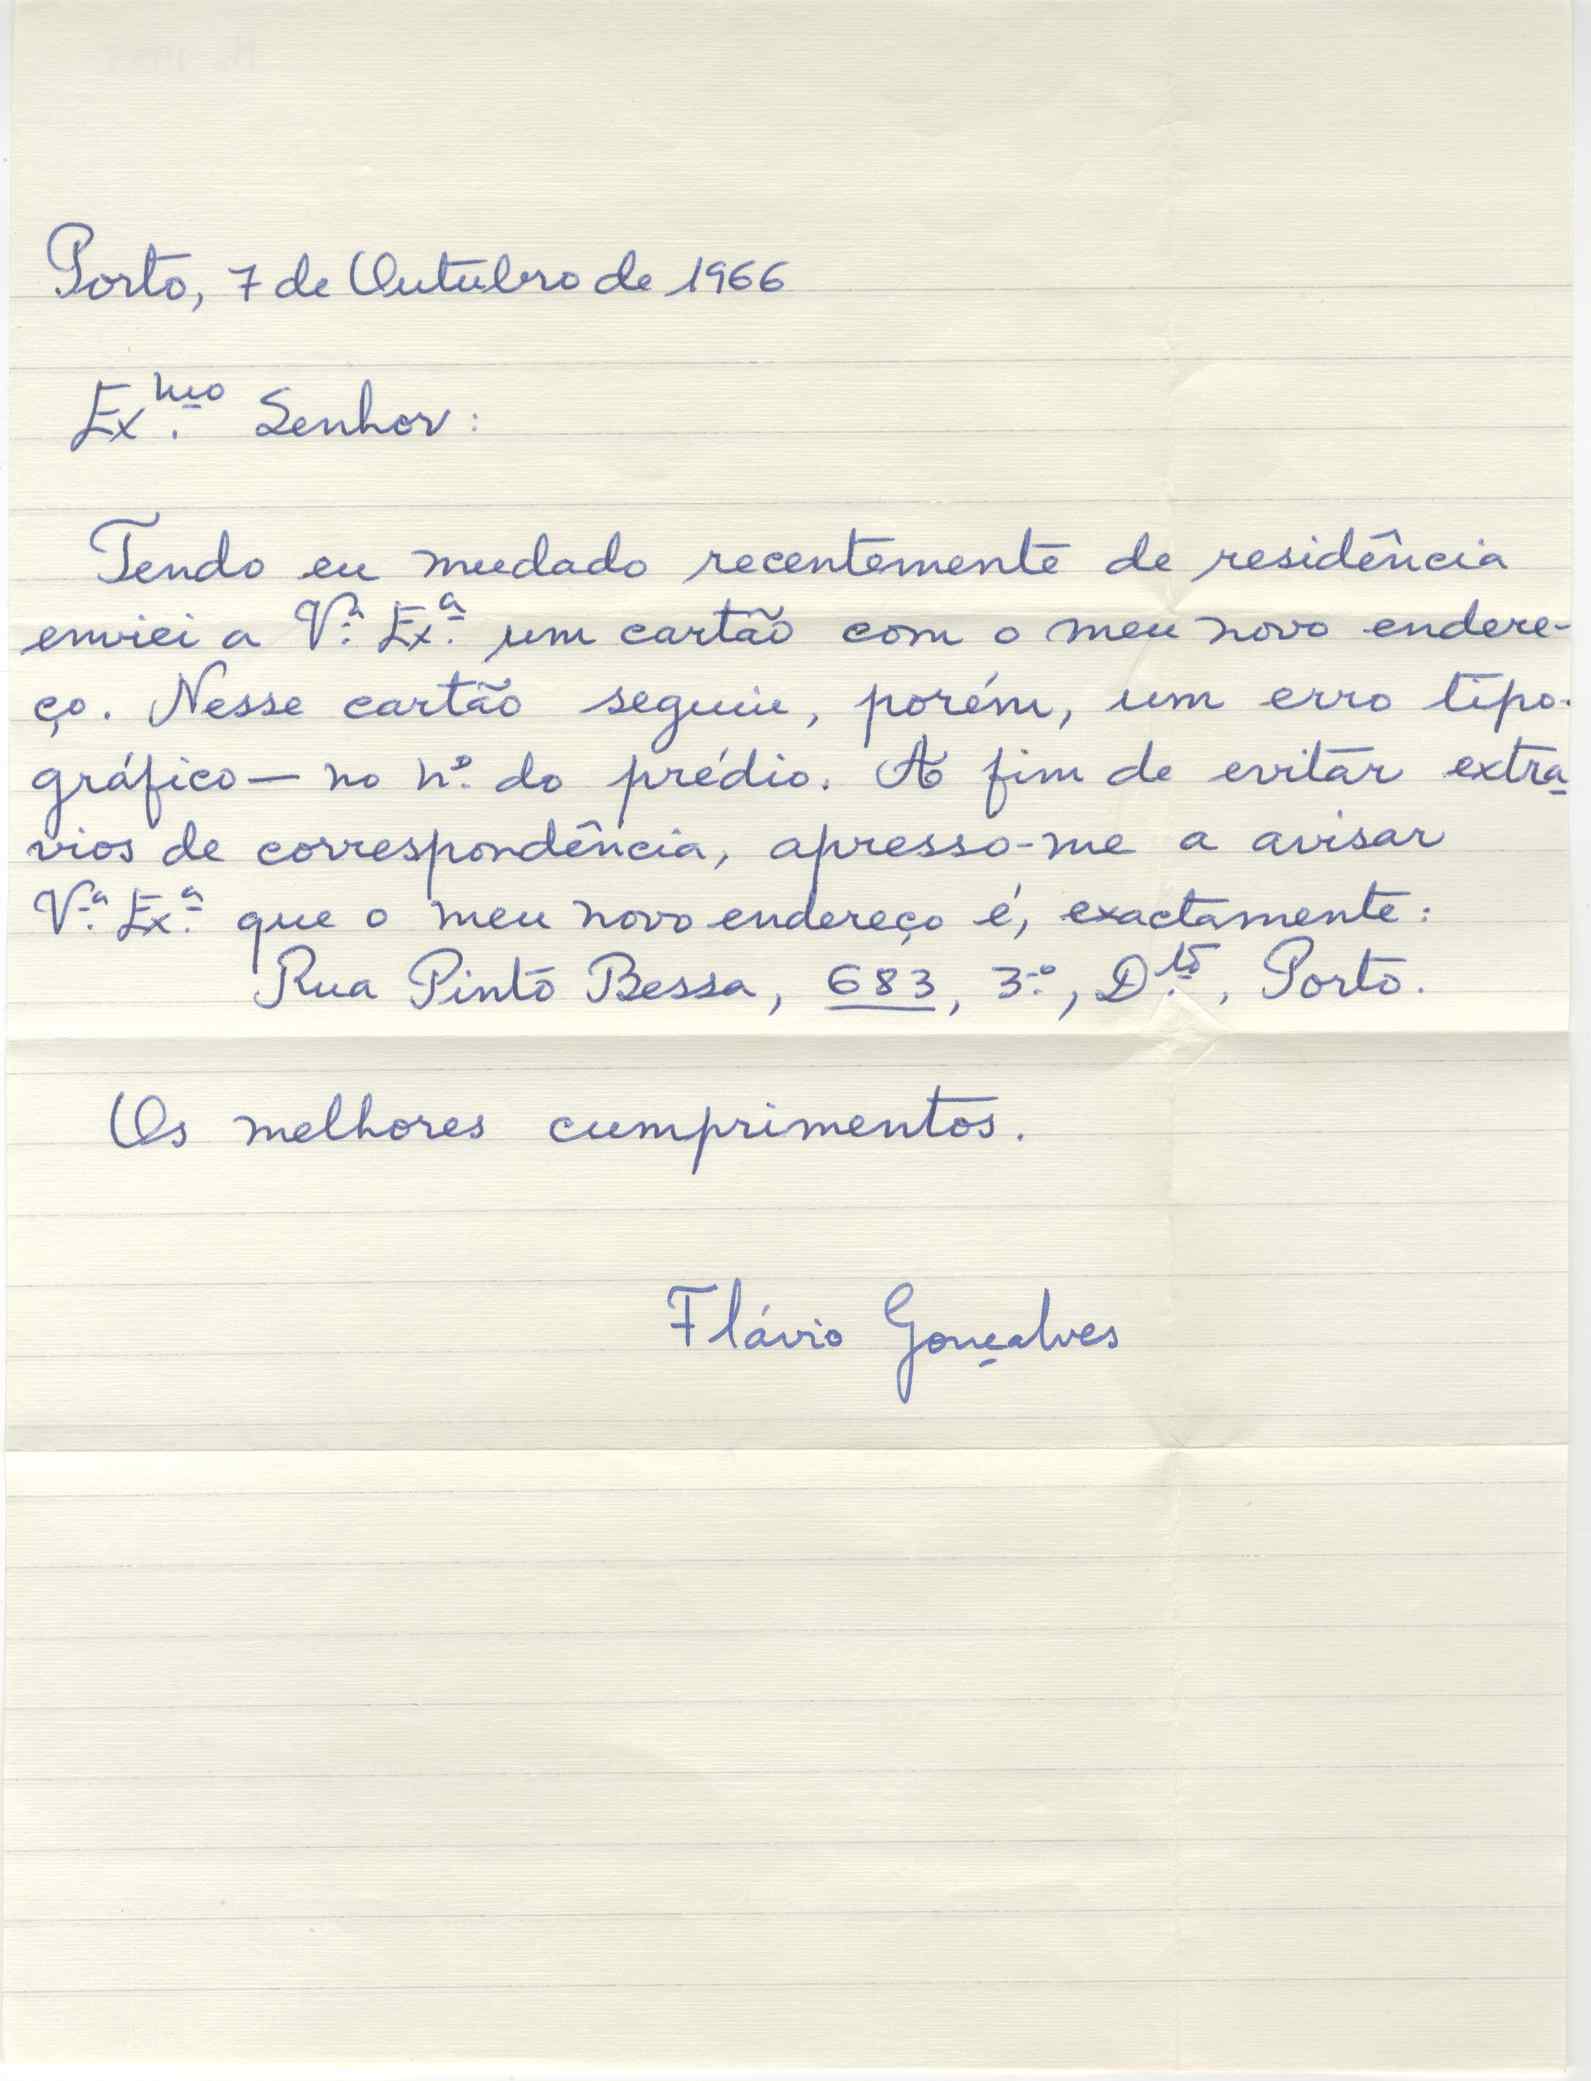 Porto, 7 de Outubro de 1966
Ex.mo Senhor:
Tendo eu mudado recentemente de residência
enviei a V.ª Ex.ª um cartão com o meu novo endere-
ço. Nesse cartão seguiu, porém, um erro tipo-
gráfico — no n.º do prédio. A fim de evitar extra-
vios de correspondência, apresso-me a avisar
V.ª Ex.ª que o meu novo endereço é, exactamente:
Rua Pinto Bessa, 683, 3.º, D.to, Porto.
Os melhores cumprimentos.
Flávio Gonçalves